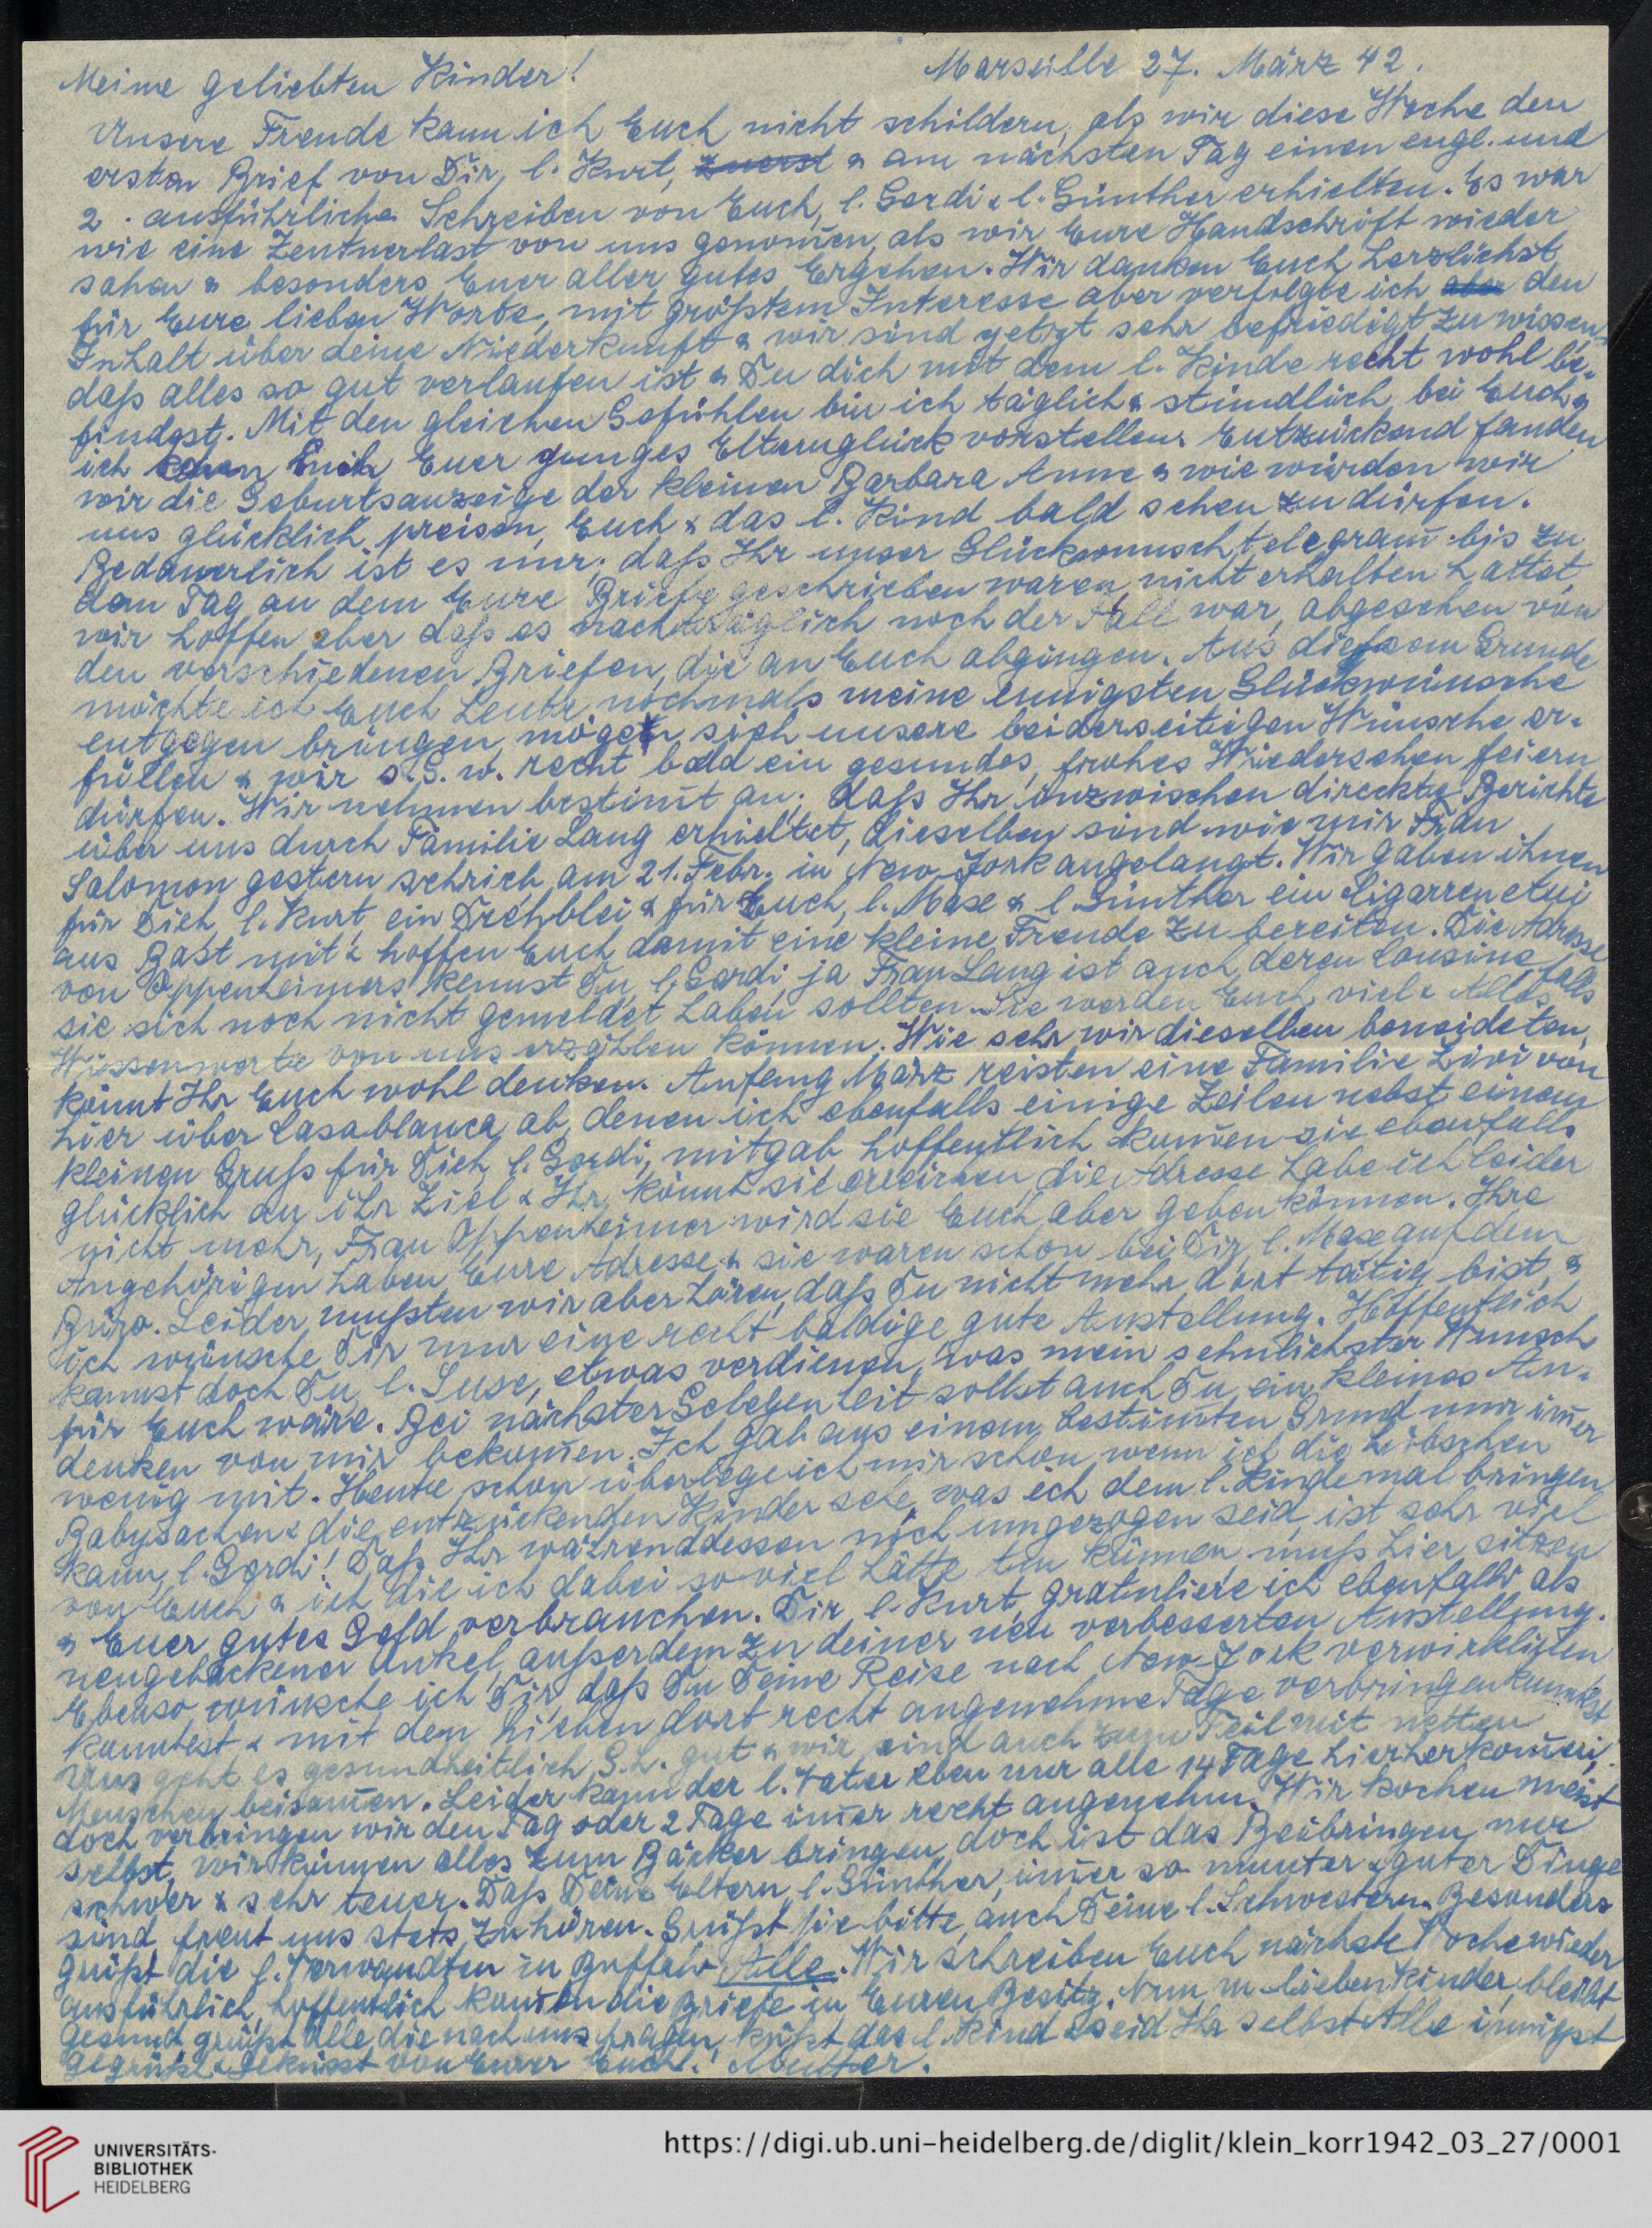 Meine geliebten Kinder! Marseille 27. März 42.
Unsere Freude kann ich Euch nicht schildern, als wir diese Woche den
ersten Brief von Dir, l. Kurt, zuerst & am nächsten Tag einen engl. und
2. ausführliche Schreiben von Euch, l. Gerdi & l. Günther erhielten. Es war
wie eine Zentnerlast von uns genom̄en, als wir Eure Handschrift wieder
sahen & besonders Euer aller gutes Ergehen. Wir danken Euch herzlichst
für Eure lieben Worte, mit größtem Interesse aber verfolgte ich aber den
Inhalt über deine Niederkunft & wir sind jetzt sehr befriedigt zu wissen,
daß alles so gut verlaufen ist & Du dich mit dem l. Kinde recht wohl be-
findest. Mit den gleichen Gefühlen bin ich täglich & stündlich bei Euch &
ich kann Euer junges Elternglück vorstellen. Entzückend fanden
wir die Geburtsanzeige der kleinen Barbara Anne & wie würden wir
uns glücklich preisen, Euch & das l. Kind bald sehen zu dürfen.
Bedauerlich ist es nur, daß Ihr unser Glückwunschtelegram̄ bis zu
dem Tag an dem Eure Briefe geschrieben waren, nicht erhalten hattet,
wir hoffen aber daß es nachträglich noch der Fall war, abgesehen von
den verschiedenen Briefen, die an Euch abgingen. Aus diesem Grunde
möchte ich Euch heute nochmals meine innigsten Glückwünsche
entgegen bringen, mögen sich unsere beiderseitigen Wünsche er-
füllen & wir s. G. w. recht bald ein gesundes, frohes Wiedersehen feiern
dürfen. Wir nehmen bestim̄t an, daß Ihr inzwischen direckte Berichte
über uns durch Familie Lang erhieltet, dieselben sind wie mir Frau
Salomon gestern schrieb, am 21. Febr. in New-York angelangt. Wir gaben ihnen
für Dich, l. Kurt ein Drehblei & für Euch, l. Max & l Günther ein Zigarrenetui
aus Bast mit & hoffen Euch damit eine kleine Freude zu bereiten. Die Adresse
von Oppenheimers kennst Du, l. Gerdi ja Frau Lang ist auch deren Cousine, falls
sie sich noch nicht gemeldet haben sollten. Sie werden Euch viel & Alles
Wissenswerte von uns erzählen können. Wie sehr wir dieselben beneideten,
könnt Ihr Euch wohl denken. Anfang März reisten eine Familie Livi von
hier über Casablanca ab, denen ich ebenfalls einige Zeilen nebst einem
kleinen Gruß für Dich, l. Gerdi, mitgab hoffentlich kom̄en sie ebenfalls
glücklich an ihr Ziel & Ihr könnt sie erreichen, die Adresse habe ich leider
nicht mehr, Frau Oppenheimer wird sie Euch aber geben können. Ihre
Angehörigen haben Eure Adresse & sie waren schon bei Dir, l. Max auf dem
Büro. Leider mußten wir aber hören, daß Du nicht mehr dort tätig bist, &
ich wünsche Dir nur eine recht baldige gute Anstellung. Hoffentlich
kannst doch Du, l. Suse, etwas verdienen, was mein sehnlichster Wunsch
für Euch wäre. Bei nächster Gelegenheit sollst auch Du ein kleines An-
denken von mir bekom̄en. Ich gab aus einem bestim̄ten Grund nur im̄er
wenig mit. Heute schon überlege ich mir schon, wenn ich die hübschen
Babysachen & die entzückenden Kinder sehe, was ich dem l. Kinde mal bringen
kann, l. Gerdi! Daß Ihr währenddessen noch umgezogen seid, ist sehr viel
von Euch & ich die ich dabei so viel hätte tun können, muß hier sitzen
& Euer gutes Geld verbrauchen. Dir, l. Kurt, gratuliere ich ebenfalls als
neugebackener Onkel, außerdem zu deiner neu verbesserten Anstellung.
Ebenso wünsche ich Dir, daß Du Deine Reise nach New-York verwirklichen
konntest & mit den Lieben dort recht angenehme Tage verbringen kannst.
Uns geht es gesundheitlich G. L. gut & wir sind auch zum Teil mit netten
Menschen beisam̄en. Leider kann der l. Vater eben nur alle 14 Tage hierherkom̄en,
doch verbringen wir den Tag oder 2 Tage im̄er recht angenehm. Wir kochen meist
selbst, wir können alles zum Bäcker bringen, doch ist das Beibringen nur
schwer & sehr teuer. Daß Deine Eltern, l. Günther, im̄er so munter & guter Dinge
sind, freut uns stets zu hören. Grüßt sie bitte, auch Deine l. Schwestern. Besonders
grüßt die l. Verwandten in Buffalo Alle. Wir schreiben Euch nächste Woche wieder
ausführlich, hoffentlich kom̄en die Briefe in Euren Besitz. Nun m. lieben Kinder, bleibt
gesund grüßt Alle die nach uns fragen, küßt das l. Kind & seid Ihr selbst Alle innigst
gegrüßt & geküsst von Eurer Euch l. Mutter.
UNIVERSITÄTS-
BIBLIOTHEK
HEIDELBERG
https://digi.ub.uni-heidelberg.de/diglit/klein_korr1942_03_27/0001